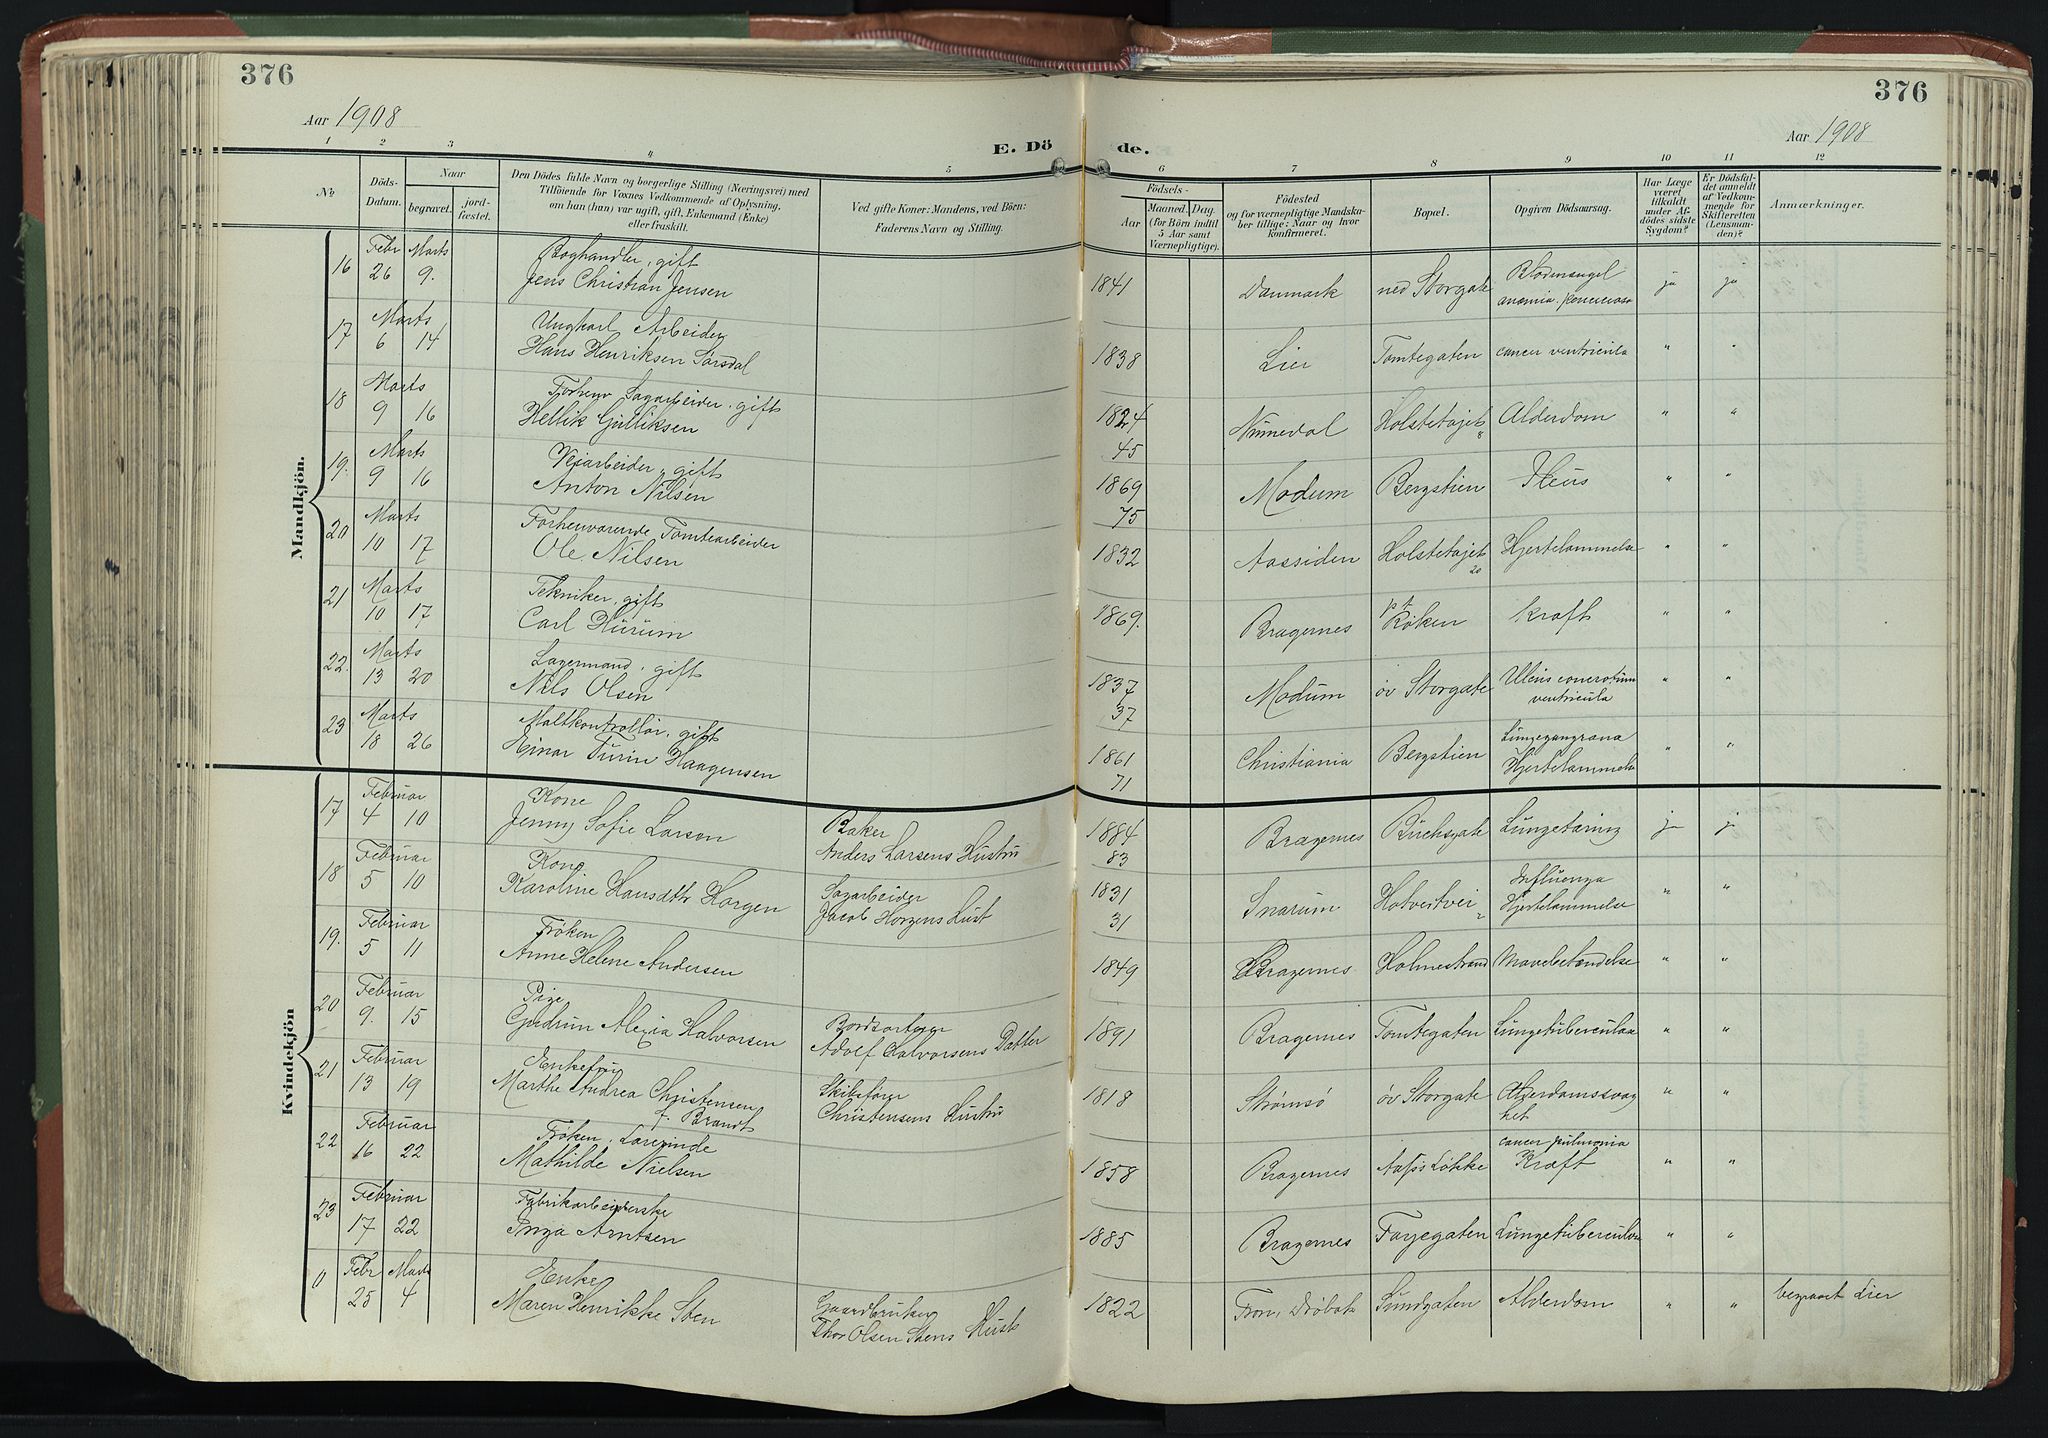 376
376
Aar 1908
Aar 1908
E. Dö
de.
1 2 3 4 5 6 7 8 9 10 11 12
No
Döds-
Datum.
Naar
begravet.
jord-
fæstet.
Den Dödes fulde Navn og borgerlige Stilling (Næringsvei) med
Tilföiende for Voxnes Vedkommende af Oplysning,
om han (hun) var ugift, gift, Enkemand (Enke)
eller fraskilt.
Ved gifte Koner: Mandens, ved Börn:
Faderens Navn og Stilling.
Födsels-
Aar
Maaned. Dag.
(for Börn indtil
5 Aar samt
Værnepligtige).
Födested
og for værnepligtige Mandska-
ber tillige: Naar og hvor
konfirmeret.
Bopæl.
Opgiven Dödsaarsag.
Har Læge
været
tilkaldt
under Af-
dödes sidste
Sygdom?
Er Dödsfal-
det anmeldt
af Vedkom-
mende for
Skifteretten
(Lensman-
den)?
Anmærkninger.
Mandkjön.
Febr Marts Boghandler, gift Blodmangel
16 26 9. Jens Christian Jensen 1841 Danmark ned Storgate anæmia. ja ja
Marts Ungkarl Arbeider
17 6 14 Hans Henriksen Sørsdal 1838 Lier Tomtegaten cancer ventricula " "
Marts Forhenv Sagarbeider. gift
18 9 16 Hellik Gulliksen 1824 Numedal Holstetøjet 8 Alderdom " "
45
Marts Veiarbeider, gift
19. 9 16 Anton Nilsen 1869 Modum Bergstien Ileus " "
75
Marts Forhenværende Tomtearbeider
20 10 17 Ole Nilsen 1832 Aassiden Holstetøjet 20 Hjertelammelse " "
Marts Tekniker, gift
21 10 17 Carl Hurum 1869. Bragernes pt Røken Kræft " "
Marts Lagermand. gift
22. 13 20 Nils Olsen 1837 Modum øv Storgate Ulcus ventricula " "
37
Marts Maltkontrollør, gift Lungegangræna
23 18 26 Einar Turin Haagensen 1861 Christiania Bergstien Hjertelammelse " "
71
Kvindekjön
Februar Kone Baker
17 4 10 Jenny Sofie Larsen Anders Larsens Hustru 1884 Bragernes Buchsgate Lungetæring ja ja
83
Februar Kone Sagarbeider Influenza
18 5 10 Karoline Hansdtr Horgen Jacob Horgens Hust 1831 Snarum Hotvetvei 2 Hjertelammelse " "
31
Februar Frøken
19. 5 11 Anne Helene Andersen 1849 Bragernes Holmestrand Mavebetændelse " "
Februar Pige
20 9. 15 Gudrun Alexia Halvorsen Adolf Halvorsens Datter 1891 Bragernes Tomtegaten Lungetuberculose " "
Februar Enkefru Skibsfører
21 13 19 Marthe Andrea Christensen f. Brandt Christensens Hustru 1818 Strømsø øv Storgate Alderdomssvaghet " "
Februar Frøken. Lærerinde cancer pulmonia
22 16 22 Mathilde Nielsen 1858 Bragernes Løkke Kræft " "
Februar Fabrikarbeiderske
23 17 22 Inga Arntsen 1885 Bragernes Fayegaten Lungetuberculose " "
Febr Marts Enke Gaardbruker
0 25 4 Maren Henrikke Sten Thor Olsen Stens Hust 1822 Fron, Drøbak Sundgaten Alderdom " " begravet Lier